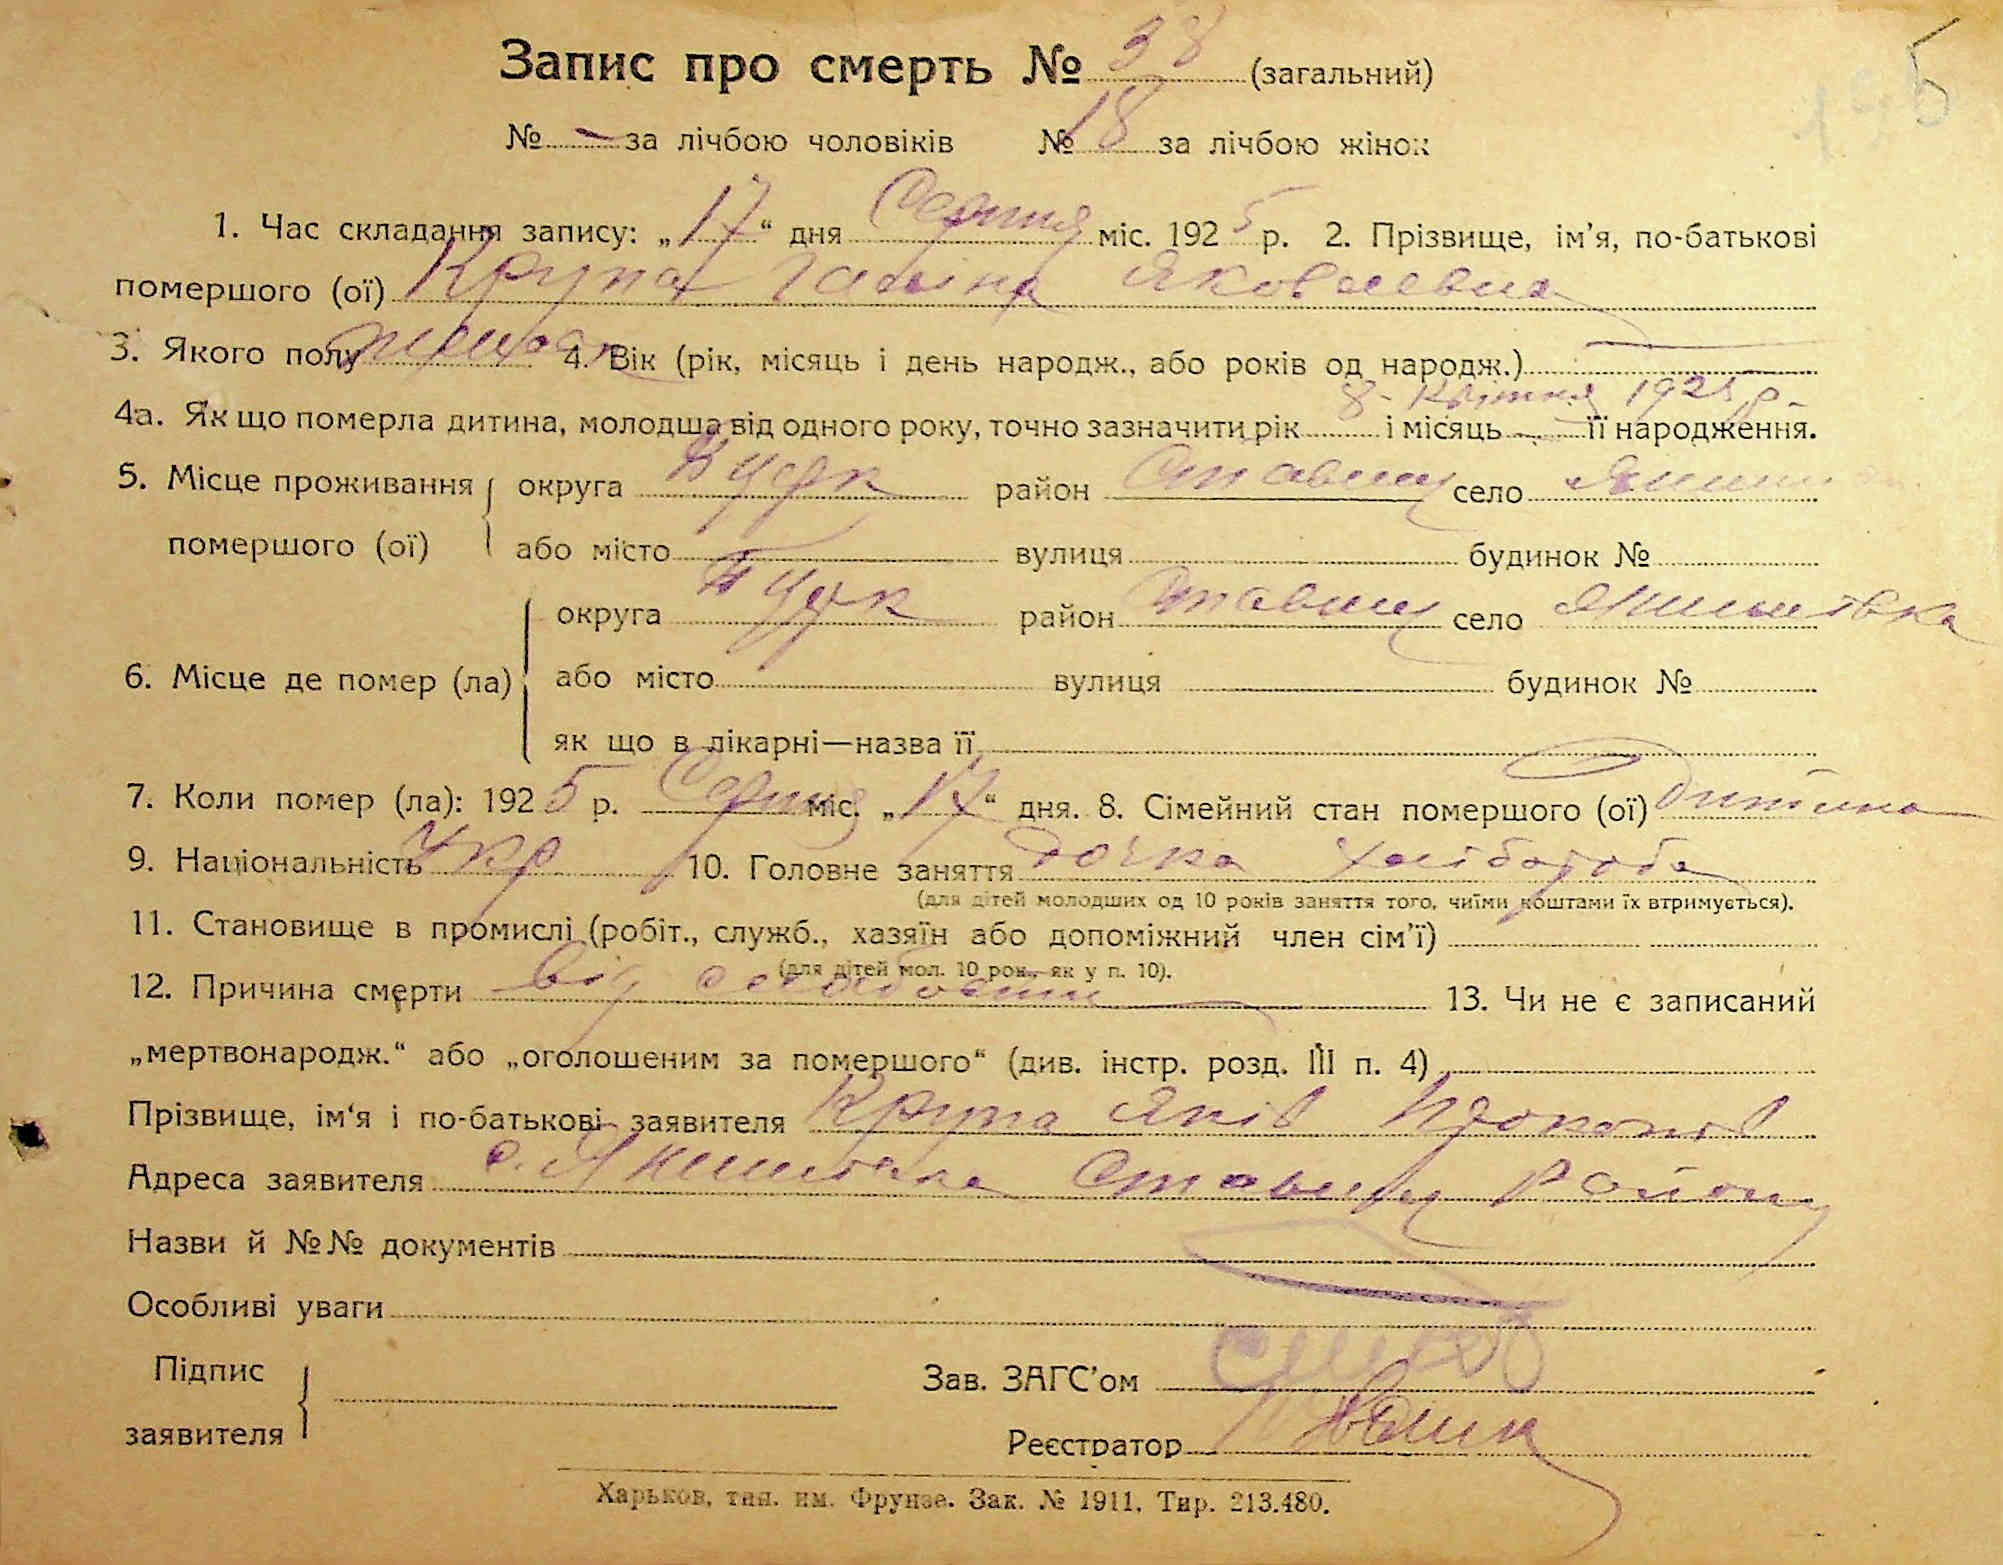 Запис про смерть № 38 (загальний)
№ - за лічбою чоловіків № 18 за лічбою жінок
1. Час складання запису: „17“ дня Серпня міс. 1925 р. 2. Прізвище, ім’я, по-батькові
помершого (ої) Крупа Галіна Яковлевна
3. Якого полу 4. Вік (рік, місяць і день народж., або років од народж.)
8 - Квітня 1925 р.
4а. Як що померла дитина, молодша від одного року, точно зазначити рік і місяць її народження.
5. Місце проживання округа район Ставищ село
помершого (ої) або місто вулиця будинок №
округа район Ставищ село Якимівка
6. Місце де помер (ла) або місто вулиця будинок №
як що в лікарні—назва її
7. Коли помер (ла): 1925 р. Серпня міс. „17“ дня. 8. Сімейний стан помершого (ої) Дитина
9. Національність Укр 10. Головне заняття Дочка хлібороба
(для дітей молодших од 10 років заняття того, чиїми коштами їх втримується).
11. Становище в промислі (робіт., служб., хазяїн або допоміжний член сім’ї)
(для дітей мол. 10 рок., як у п. 10).
12. Причина смерти від слабости 13. Чи не є записаний
„мертвонародж.“ або „оголошеним за помершого“ (див. інстр. розд. III п. 4)
Прізвище, ім‘я і по-батькові заявителя Крупа Яків
Адреса заявителя с. Ставищ району
Назви й №№ документів
Особливі уваги
Підпис
заявителя
Зав. ЗАГС’ом
Реєстратор
Харьков, тип. им. Фрунзе. Зак. № 1911. Тир. 213.480.